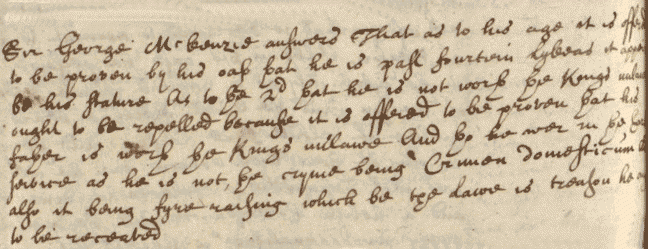 Sir George McKenzie answers That as to his age it is offered
to be proven by his oath that he is past fourtein lykeas it appears
be his stature As to the 2d that he is not worth the Kings unlawe
ought to be repelled because it is offered to be proven that his
father is worth the Kings unlawe And tho he wer in the
service as he is not, the cryme being Crimen domesticum
also it being fyre raising which be the Lawe is treason he
to be receaved